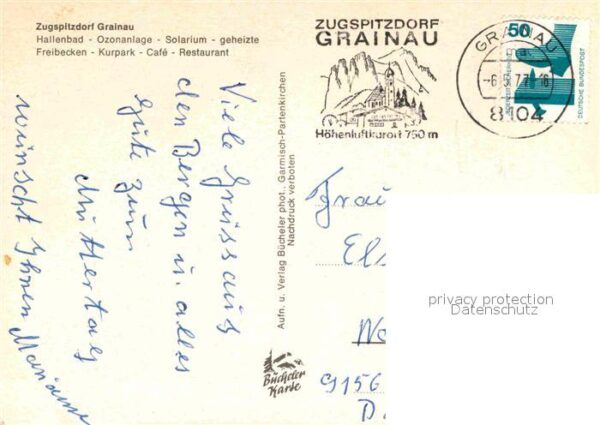 Zugspitzdorf Grainau
Hallenbad - Ozonanlage - Solarium - geheizte
Freibecken - Kurpark - Café - Restaurant
ZUGSPITZDORF
GRAINAU
Höhenluftkurort 750 m
GRAINAU
8104
50
DEUTSCHE BUNDESPOST
Viele Grüsse aus
den Bergen u. alles
Gute zum
Muttertag
wünscht Ihnen Marianne
Aufn. u. Verlag Bücheler phot., Garmisch-Partenkirchen
Nachdruck verboten
Bücheler
Karte
Frau
privacy protection
Datenschutz